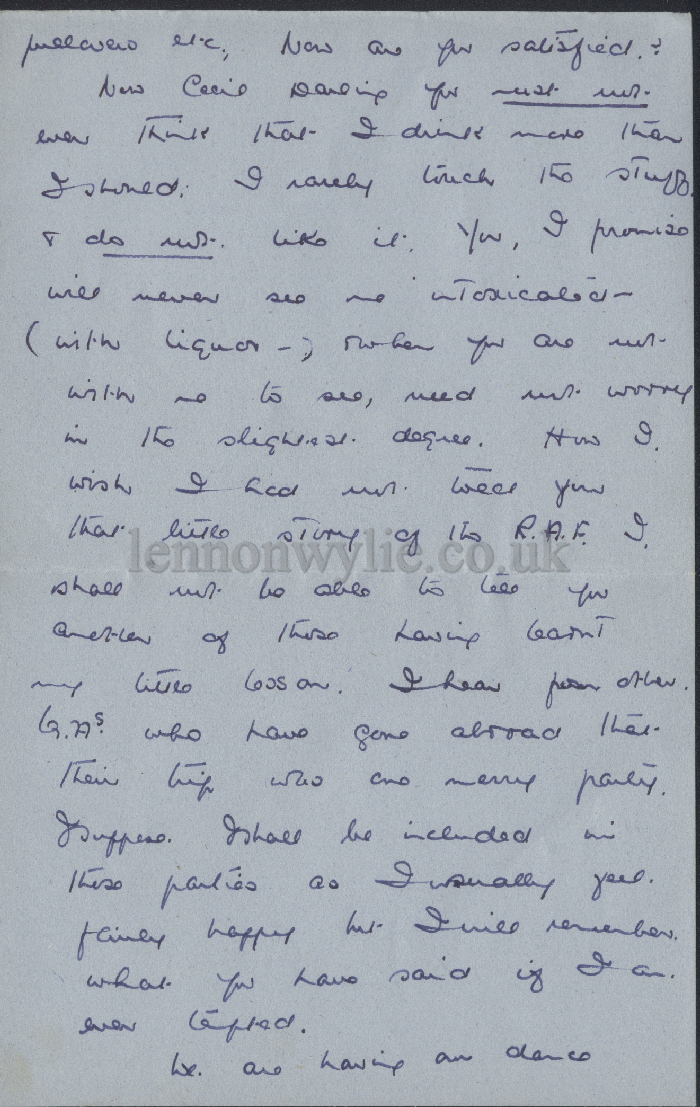 pullovers etc., Now are you satisfied.?
Now Cecil Darling you must not
ever think that I drink more than
I should. I rarely touch the stuff.
& do not. like it. You, I promise
will never see me intoxicated –
(with liquor –) & when you are not
with me to see, need not worry
in the slightest degree. How I
wish I had not told you
that little story of the R.A.F. I
shall not be able to tell you
another of those having learnt
my little lesson. I hear from other
who have gone abroad that
their trip was one merry party.
I suppose. I shall be included in
these parties as I usually feel
fairly happy but I will remember
what you have said if I am
ever tempted.
We are having our dance
lennonwylie.co.uk